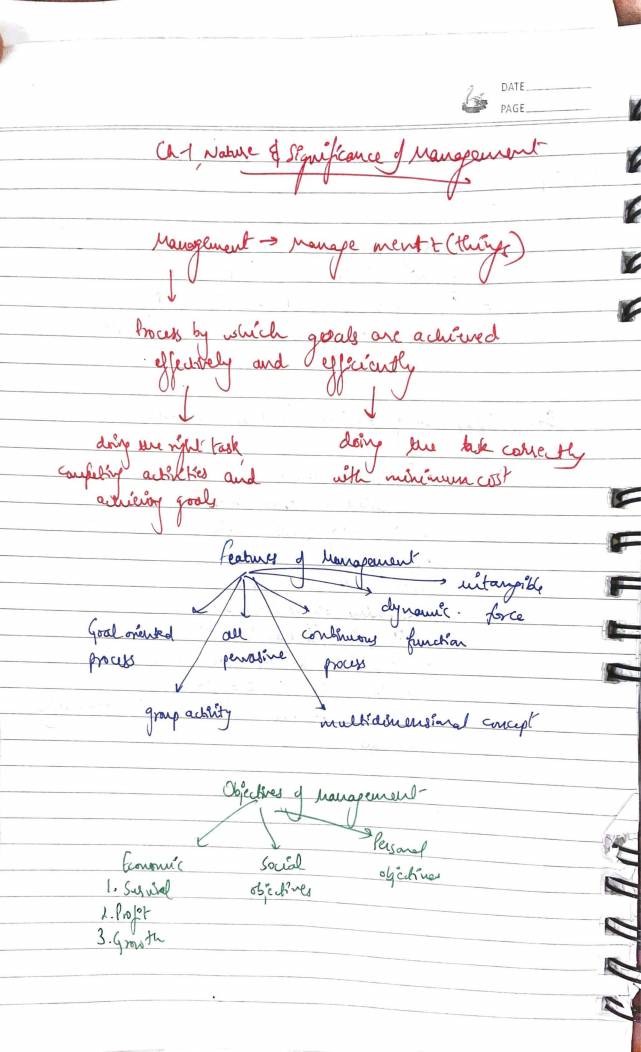 DATE
PAGE
Ch-1, Nature & Significance of Management
Management → manage ment t (things)
Process by which goals are achieved
effectively and efficiently
doing the right task
completing activities and
achieving goals
doing the task correctly
with minimum cost
Features of Management
intangible
force
dynamic
function
Goal oriented
process
all
pervasive
continuous
process
group activity
multidimensional concept
Objectives of management
Economic
1. Survival
2. Profit
3. Growth
Social
objectives
Personal
objectives